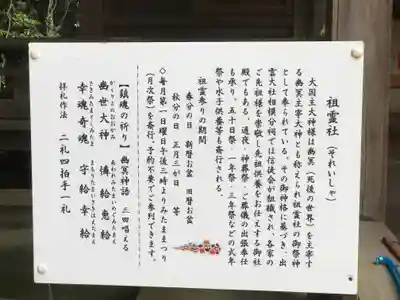 祖霊社(それいしゃ)
大国主大神様は幽冥(死後の世界)を主宰す
る幽冥主宰大神とも称えられ祖霊社の御祭神
として奉られている。その御神格に基づき、出
雲大社相模分祠では信徒会が組織され、各家の
ご先祖様を崇敬し先祖供養をお任えする御社
殿でもある。通夜・神葬祭・ご葬儀の出張奉仕
も承り、五十日祭・一年祭・三年祭などの式年
祭や水子供養等も斎行される。
祖霊参りの期間
春分の日 新暦お盆 旧暦お盆
秋分の日 正月三が日 等
◇毎月第一日曜日午後三時よりみたままつり
(月次祭)を斎行。予約不要でご参列できます。
【鎮魂の祈り】幽冥神語 三回唱える
かくりよのおおかみ あわれみたまいめぐみたまえ
幽世大神 憐給恵給
さきみたまくしみたま まもりたまいさきはえたまえ
幸魂奇魂 守給幸給
拝礼作法 二礼四拍手一礼